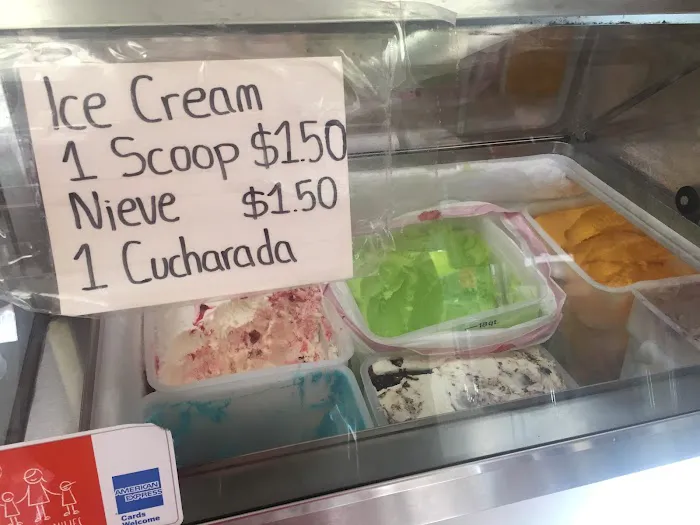 Ice Cream
1 Scoop $1.50
Nieve $1.50
1 Cucharada
AMERICAN
EXPRESS
Cards
Welcome